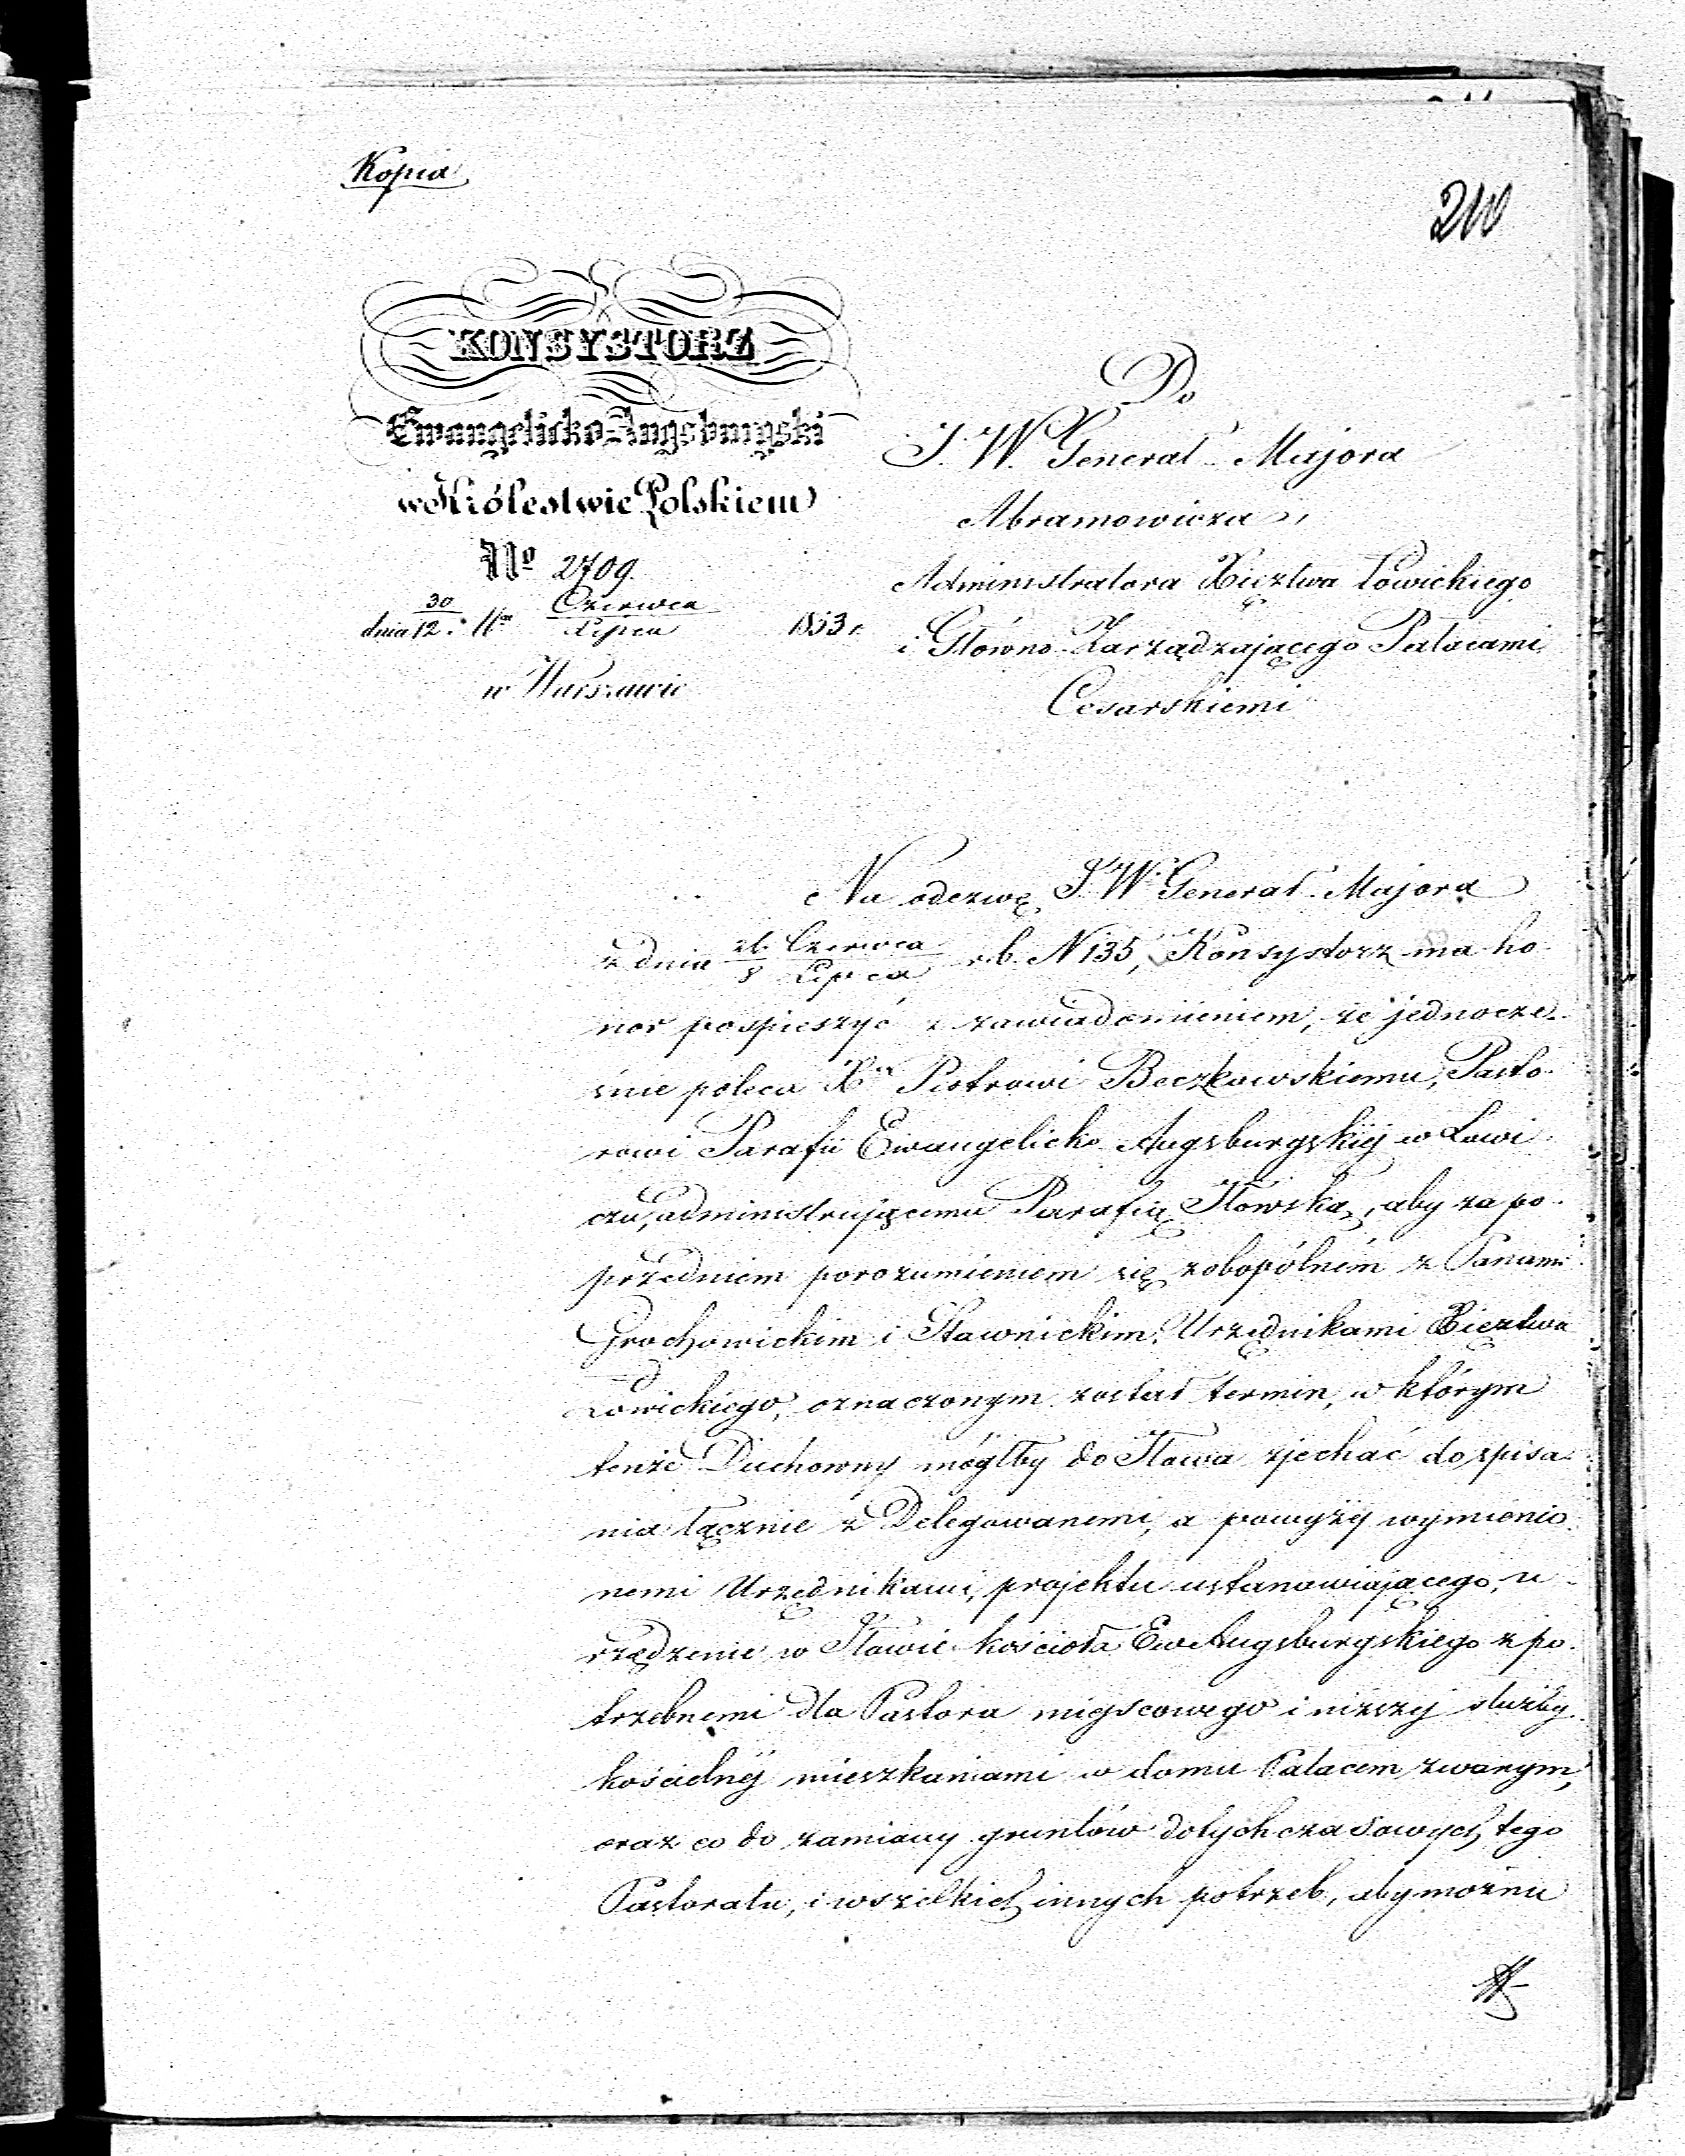 Kopia
210
KONSYSTORZ
Ewangelicko Augsburgski
w Królestwie Polskiem
Nº 2709.
dnia 30/12. Mca Czerwca/Lipca 1853 r.
w Warszawie
Do
J. W. Generał-Majora
Abramowicza,
Administratora Xięztwa Łowickiego
i Główno-Zarządzającego Pałacami
Cesarskiemi
Na odezwę J. W. Generał-Majora
z dnia 26 Czerwca/8 Lipca r.b. N 135, Konsystorz ma ho-
nor pospieszyć z zawiadomieniem, że jednocze-
śnie poleca Xu Piotrowi Beczkowskiemu, Pasto-
rowi Parafii Ewangelicko-Augsburgskiéj w Łowi-
czu, administrującemu Parafią Iłowską, aby za po-
przedniem porozumieniem się zobopólném z Panami
Grochowickim i Sławnickim, Urzędnikami Xięztwa
Łowickiego, oznaczonym został termin, w którym
tenże Duchowny mógłby do Iłowa zjechać do spisa-
nia łącznie z Delegowanemi, a powyżéj wymienio-
nemi Urzędnikami, projektu ustanowiającego, u-
rządzenie w Iłowie kościoła Ew. Augsburgskiego z po-
trzebnemi dla Pastora miejscowego i niższéj służby
kościelnéj mieszkaniami w domu Pałacem zwanym,
oraz co do zamiany gruntów dotychczasowych tego
Pastoratu, i wszelkich innych potrzeb, aby można